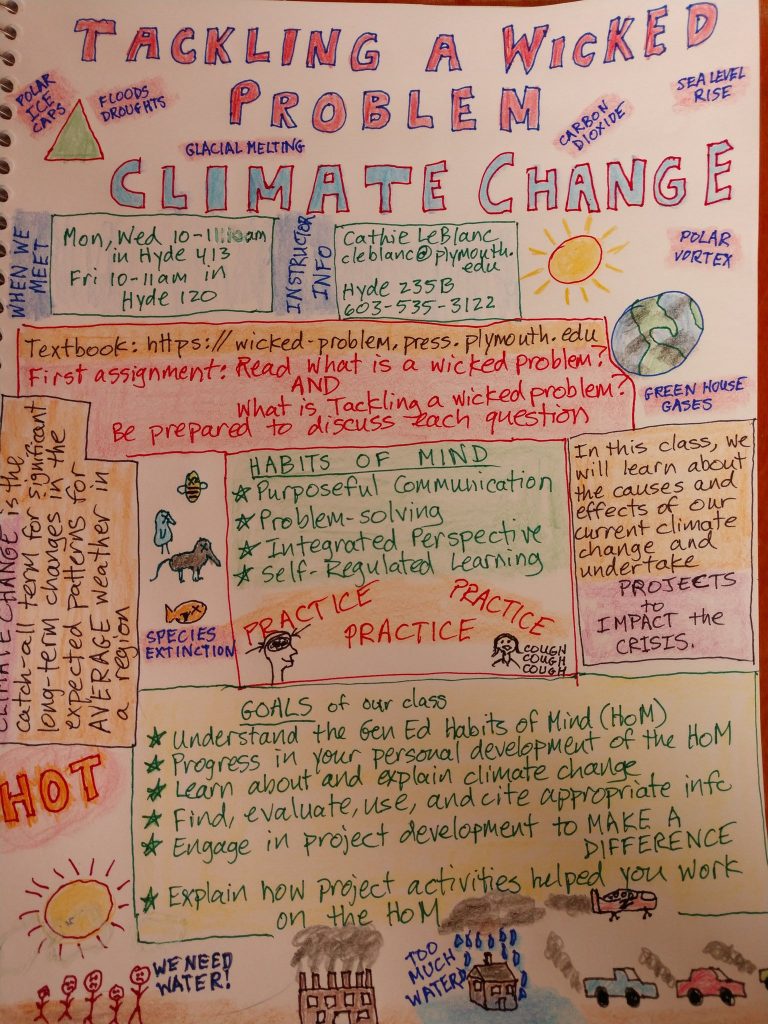 TACKLING A WICKED
PROBLEM
POLAR
ICE
CAPS
FLOODS
DROUGHTS
GLACIAL MELTING
CARBON
DIOXIDE
SEA LEVEL
RISE
CLIMATE CHANGE
WHEN WE
MEET
Mon, Wed 10-11:10am
in Hyde 413
Fri 10-11am in
Hyde 120
INSTRUCTOR
INFO
Cathie LeBlanc
cleblanc@plymouth.
edu
Hyde 235B
603-535-3122
POLAR
VORTEX
Textbook: https://wicked-problem.press.plymouth.edu
First assignment: Read What is a wicked problem?
AND
What is Tackling a wicked problem?
Be prepared to discuss each question
GREEN HOUSE
GASES
CLIMATE CHANGE is the
catch-all term for significant
long-term changes in the
expected patterns for
AVERAGE weather in
a region
SPECIES
EXTINCTION
HABITS OF MIND
Purposeful Communication
Problem-solving
Integrated Perspective
Self-Regulated Learning
PRACTICE
PRACTICE
PRACTICE
COUGH
COUGH
COUGH
In this class, we
will learn about
the causes and
effects of our
current climate
change and
undertake
PROJECTS
to
IMPACT the
CRISIS.
GOALS of our class
Understand the Gen Ed Habits of Mind (HoM)
Progress in your personal development of the HoM
Learn about and explain climate change
Find, evaluate, use, and cite appropriate info
Engage in project development to MAKE A
DIFFERENCE
Explain how project activities helped you work
on the HoM
HOT
WE NEED
WATER!
TOO
MUCH
WATER!